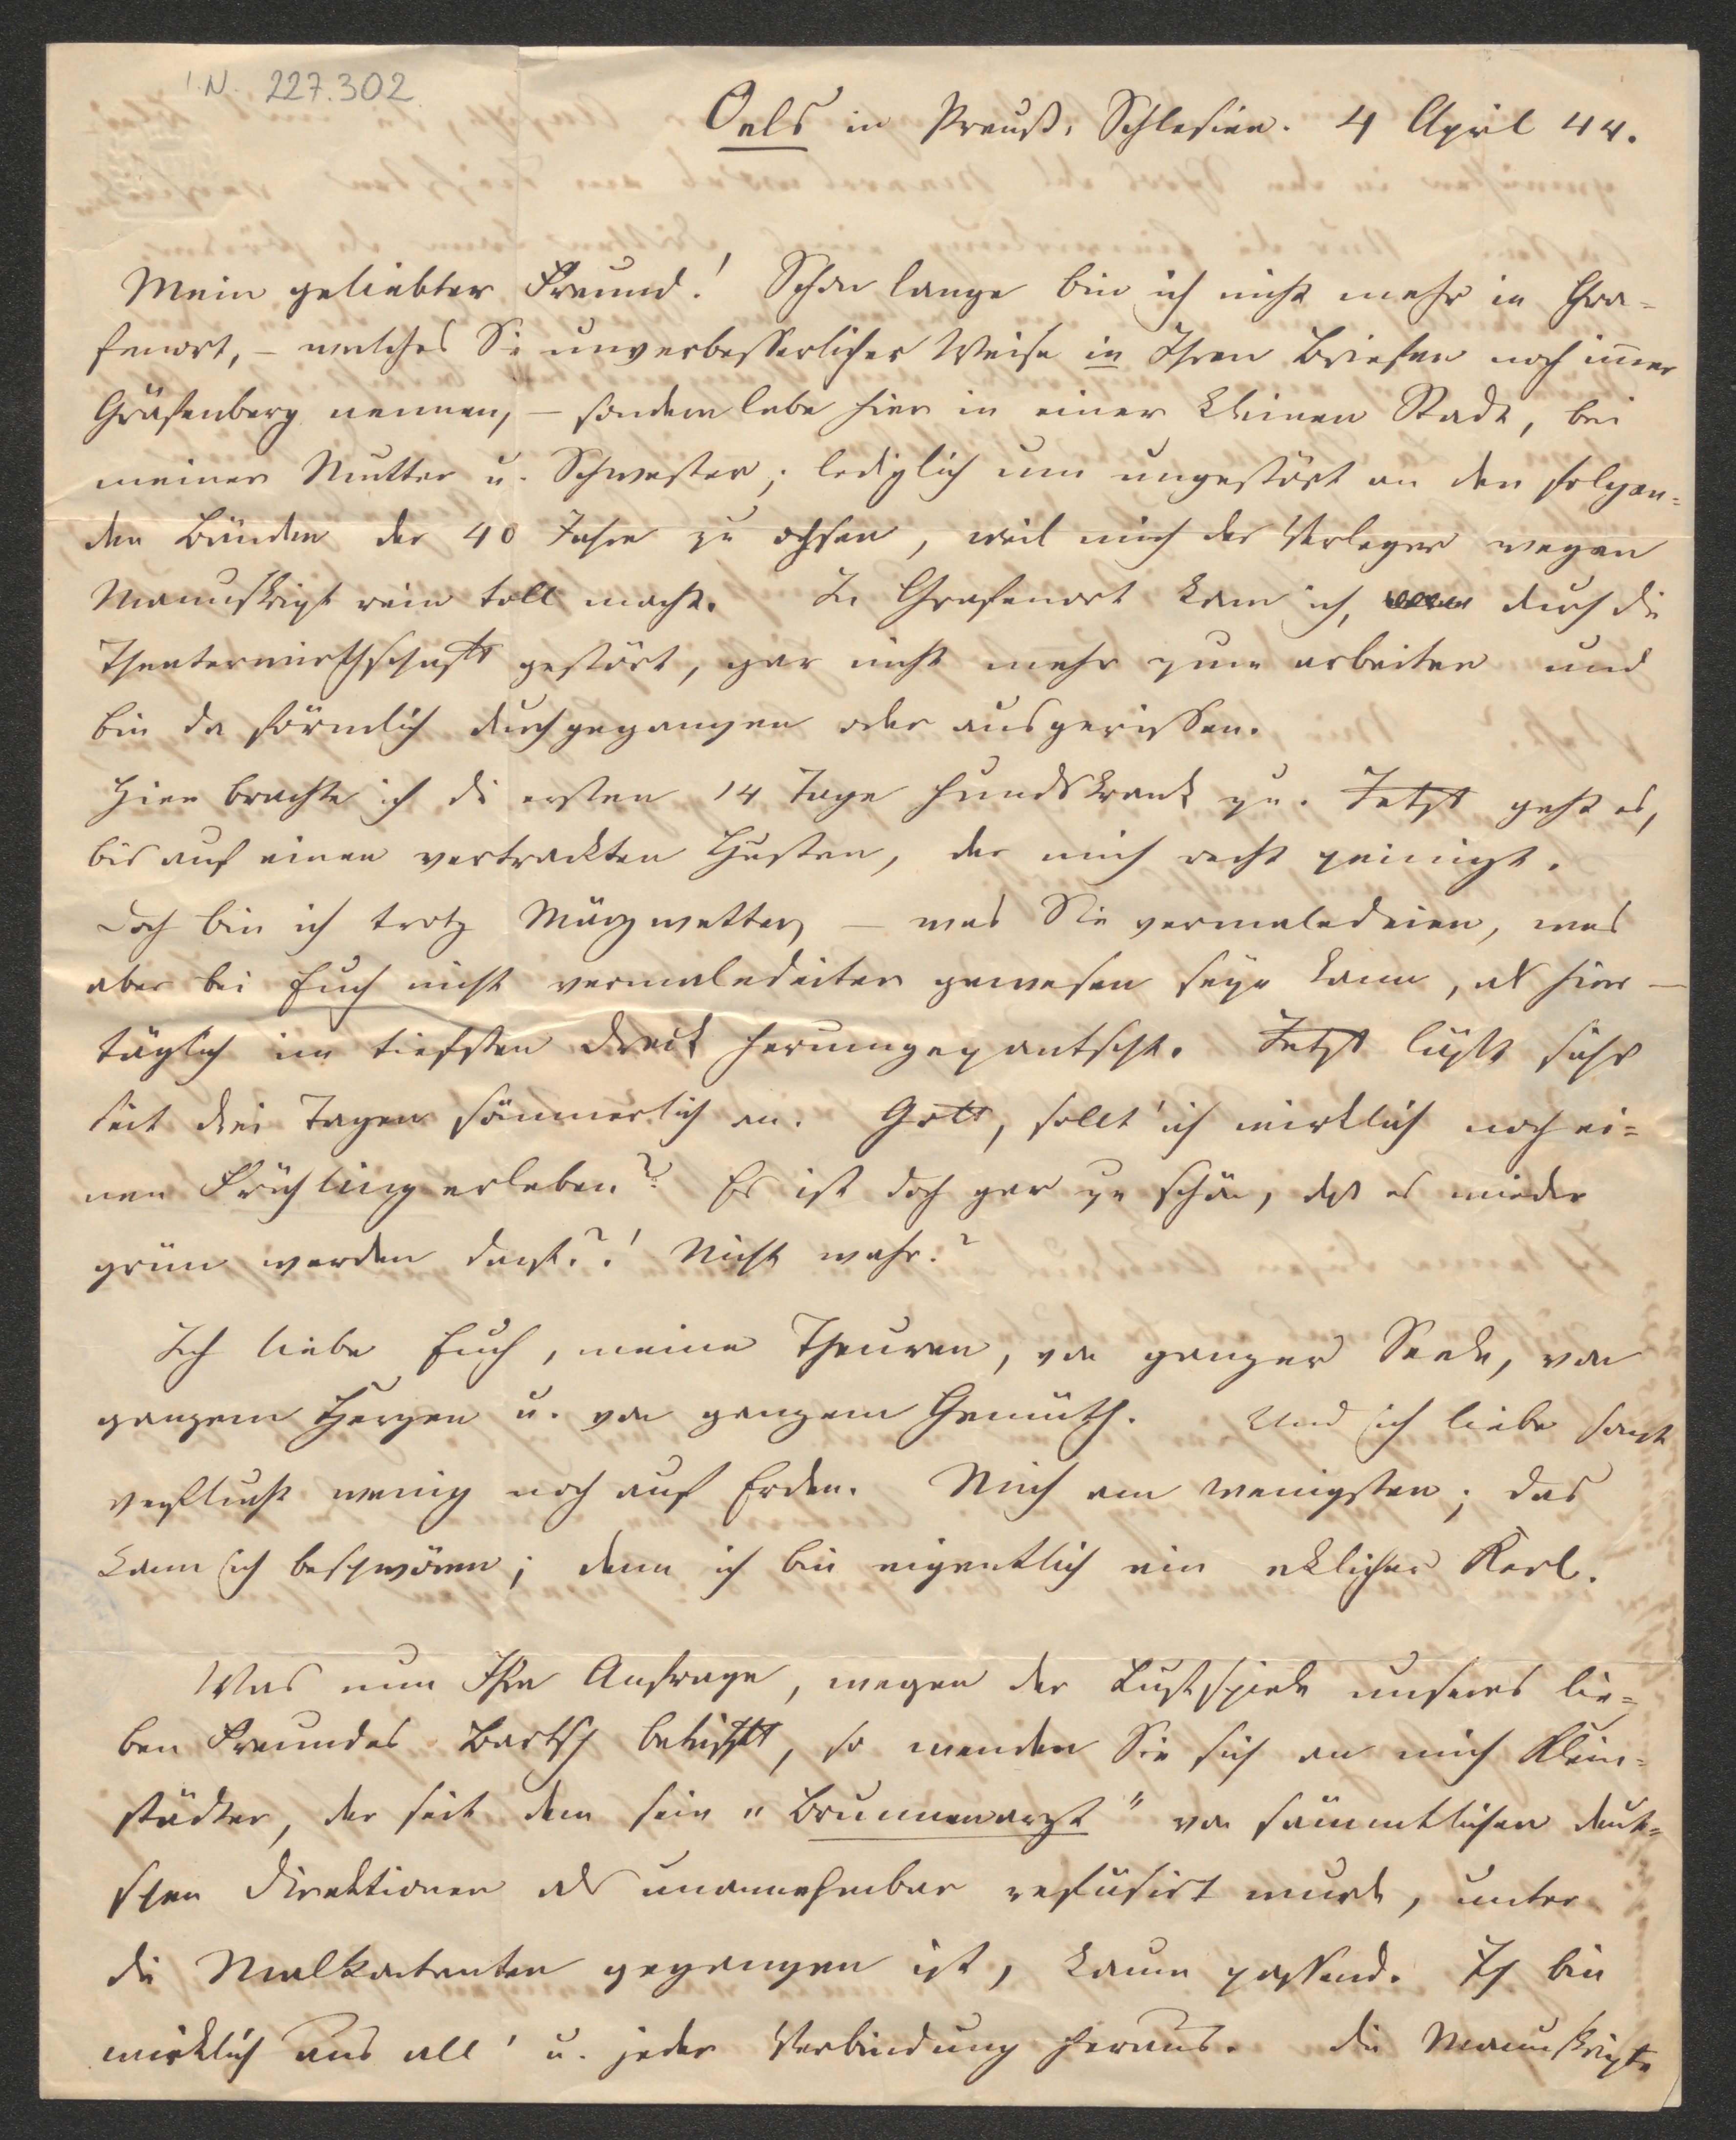 I.N. 227.302
Oels in Preuß. Schlesien. 4 April 44.
Mein geliebter Freund! Schon lange bin ich nicht mehr in Gra-
fenort, – welches Sie unverbesserlicher Weise in Ihren Briefen noch im̅er
Gräfenberg nennen, – sondern lebe hier in einer kleinen Stadt, bei
meiner Mutter u. Schwester; lediglich um ungestört an den folgen-
den Bänden der 40 Jahre zu ochsen, weil mich der Verleger wegen
Manuskript rein toll macht. In Grafenort kam ich, durch die
Theaterwirthschaft gestört, gar nicht mehr zum arbeiten und
bin da förmlich durchgegangen oder ausgerissen.
Hier brachte ich die ersten 14 Tage hundskrank zu. Jetzt geht es,
bis auf einen vertrackten Husten, der mich recht peinigt.
Doch bin ich trotz Märzwetter, – was Sie vermaledeien, was
aber bei Euch nicht vermaledeiter gewesen seyn kann, als hier –
täglich im tiefsten Dreck herumgepantscht. Jetzt läßts sichs
seit drei Tagen sömmerlich an. Gott, sollt' ich wirklich noch ei-
nen Frühling erleben? Es ist doch gar zu schön, daß es wieder
grün werden darf?! Nicht wahr?
Ich liebe Euch, meine Theuren, von ganzer Seele, von
ganzem Herzen u. von ganzem Gemüth. Und ich liebe sonst
verflucht wenig noch auf Erden. Mich am wenigsten; das
kann ich beschwören; denn ich bin eigentlich ein eklicher Kerl.
Was nun Ihre Anfrage, wegen der Lustspiele unseres lie-
ben Freundes Bartsch betrifft, so wenden Sie sich an mich Klein-
städter, der seit dem sein „Brunnenarzt" von sämmtlichen deut-
schen Direktionen als unannehmbar refüsirt wurde, unter
die Malkontenten gegangen ist, kaum passend. Ich bin
wirklich aus all' u. jeder Verbindung heraus. Die Manuskripte